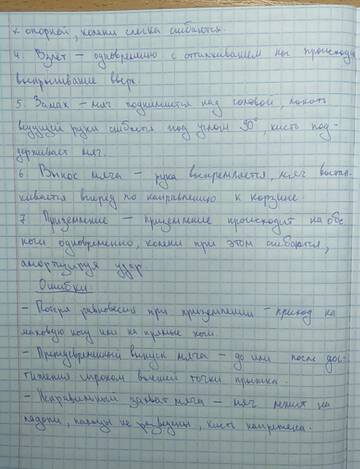 к опорной, колени слегка сгибаются.
4. Взлёт – одновременно с отталкиванием ног происходит
выпрыгивание вверх.
5. Замах – мяч поднимается над головой, локоть
ведущей руки сгибается под углом 90°, кисть под-
держивает мяч.
6. Вынос мяча – рука выпрямляется, мяч вытал-
кивается вперёд по направлению к корзине
7. Приземление – приземление происходит на обе
ноги одновременно, колени при этом сгибаются,
амортизируя удар
Ошибки:
– Потеря равновесия при приземлении – приход на
маховую ногу или на прямые ноги.
– Преждевременный выпуск мяча – до или после дос-
тижения игроком высшей точки прыжка.
– Неправильный захват мяча – мяч лежит на
ладони, пальцы не разведены, кисть напряжена.